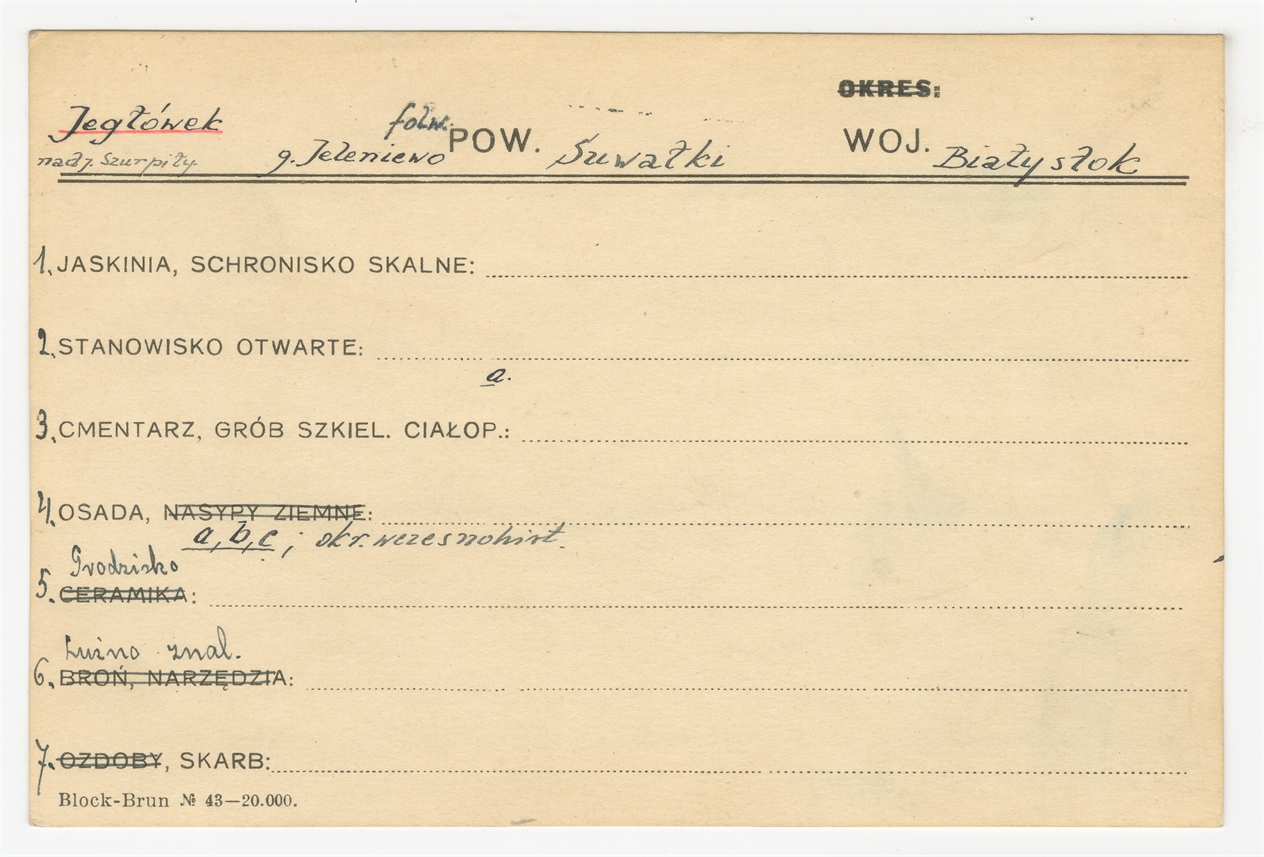 OKRES:
Jegłówek folw. POW. Suwałki WOJ. Białystok
nad j. Szurpiły g. Jeleniewo
1. JASKINIA, SCHRONISKO SKALNE:
2. STANOWISKO OTWARTE:
a.
3. CMENTARZ, GRÓB SZKIEL. CIAŁOP.:
4. OSADA, NASYPY ZIEMNE:
a, b, c ; okr. wczesnohist.
Grodzisko
5. CERAMIKA:
Luźno znal.
6. BROŃ, NARZĘDZIA:
7. OZDOBY, SKARB:
Block-Brun № 43—20.000.